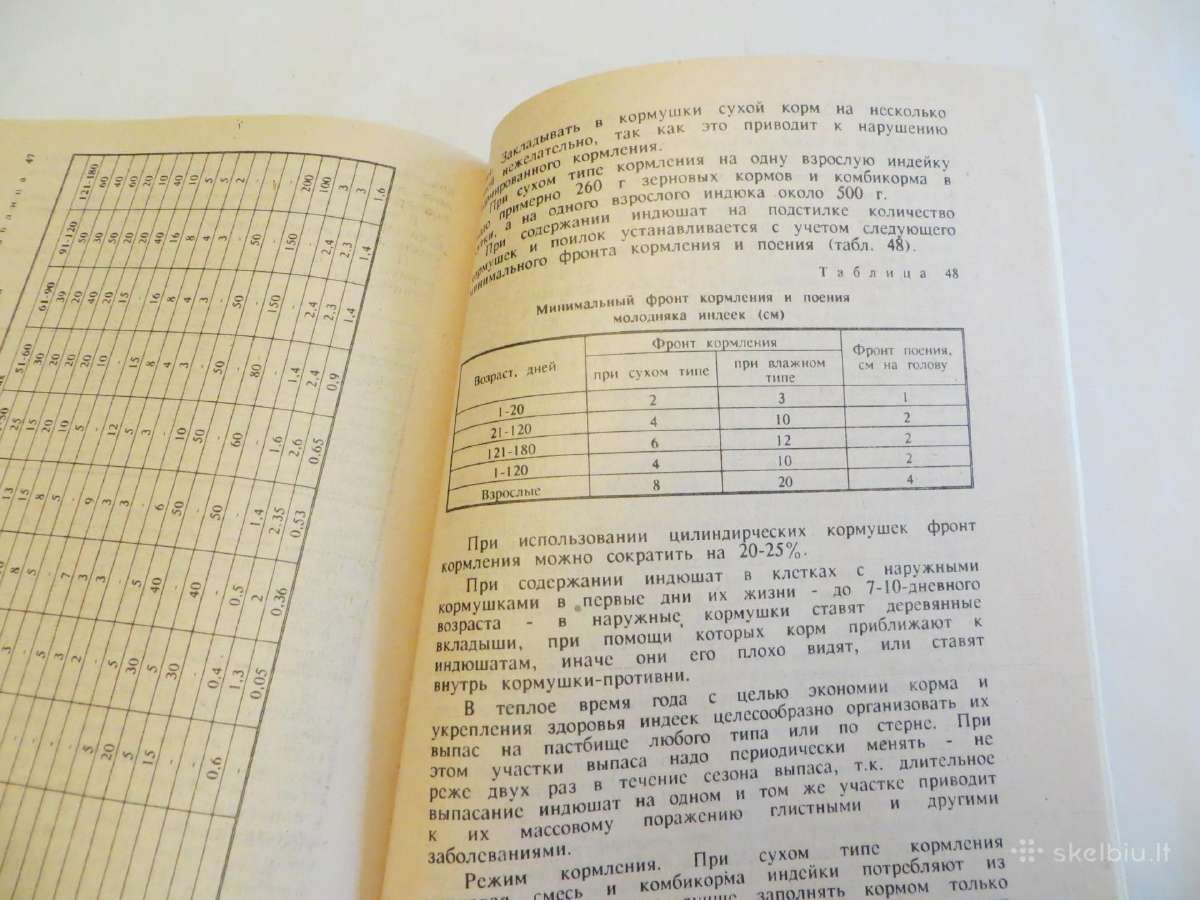 47
121-180
60
40
60
20
10
40
10
5
5
2
-
-
200
100
3
3
1,6
91-120
50
30
50
20
20
40
16
8
4
3
-
50
-
150
-
2,4
2,3
1,4
61-90
39
20
40
20
15
-
16
8
4
3
-
50
-
150
-
2,4
2,3
1,4
51-60
30
20
20
10
-
15
8
4
3
-
50
-
80
-
1,4
2,4
0,9
25
15
20
10
5
-
12
5
3
-
10
50
-
60
-
1,6
2,6
0,65
13
15
8
5
-
9
3
3
-
6
50
-
50
-
1,4
2,35
0,53
8
5
-
7
3
3
-
5
40
-
40
-
0,5
2
0,36
3
-
5
3
2
-
5
30
5
30
-
0,4
1,3
0,05
5
20
5
15
-
-
0,6
-
Закладывать в кормушки сухой корм на несколько
нежелательно, так как это приводит к нарушению
кормления.
При сухом типе кормления на одну взрослую индейку
примерно 260 г зерновых кормов и комбикорма в
а на одного взрослого индюка около 500 г.
При содержании индюшат на подстилке количество
и поилок устанавливается с учетом следующего
минимального фронта кормления и поения (табл. 48).
Таблица 48
Минимальный фронт кормления и поения
молодняка индеек (см)
Возраст, дней
Фронт кормления
Фронт поения,
см на голову
при сухом типе
при влажном
типе
1-20 2 3 1
21-120 4 10 2
121-180 6 12 2
1-120 4 10 2
Взрослые 8 20 4
При использовании цилиндирческих кормушек фронт
кормления можно сократить на 20-25%.
При содержании индюшат в клетках с наружными
кормушками в первые дни их жизни - до 7-10-дневного
возраста - в наружные кормушки ставят деревянные
вкладыши, при помощи которых корм приближают к
индюшатам, иначе они его плохо видят, или ставят
внутрь кормушки-противни.
В теплое время года с целью экономии корма и
укрепления здоровья индеек целесообразно организовать их
выпас на пастбище любого типа или по стерне. При
этом участки выпаса надо периодически менять - не
реже двух раз в течение сезона выпаса, т.к. длительное
выпасание индюшат на одном и том же участке приводит
к их массовому поражению глистными и другими
заболеваниями.
Режим кормления. При сухом типе кормления
смесь и комбикорма индейки потребляют из
заполнять кормом только
skelbiu.lt